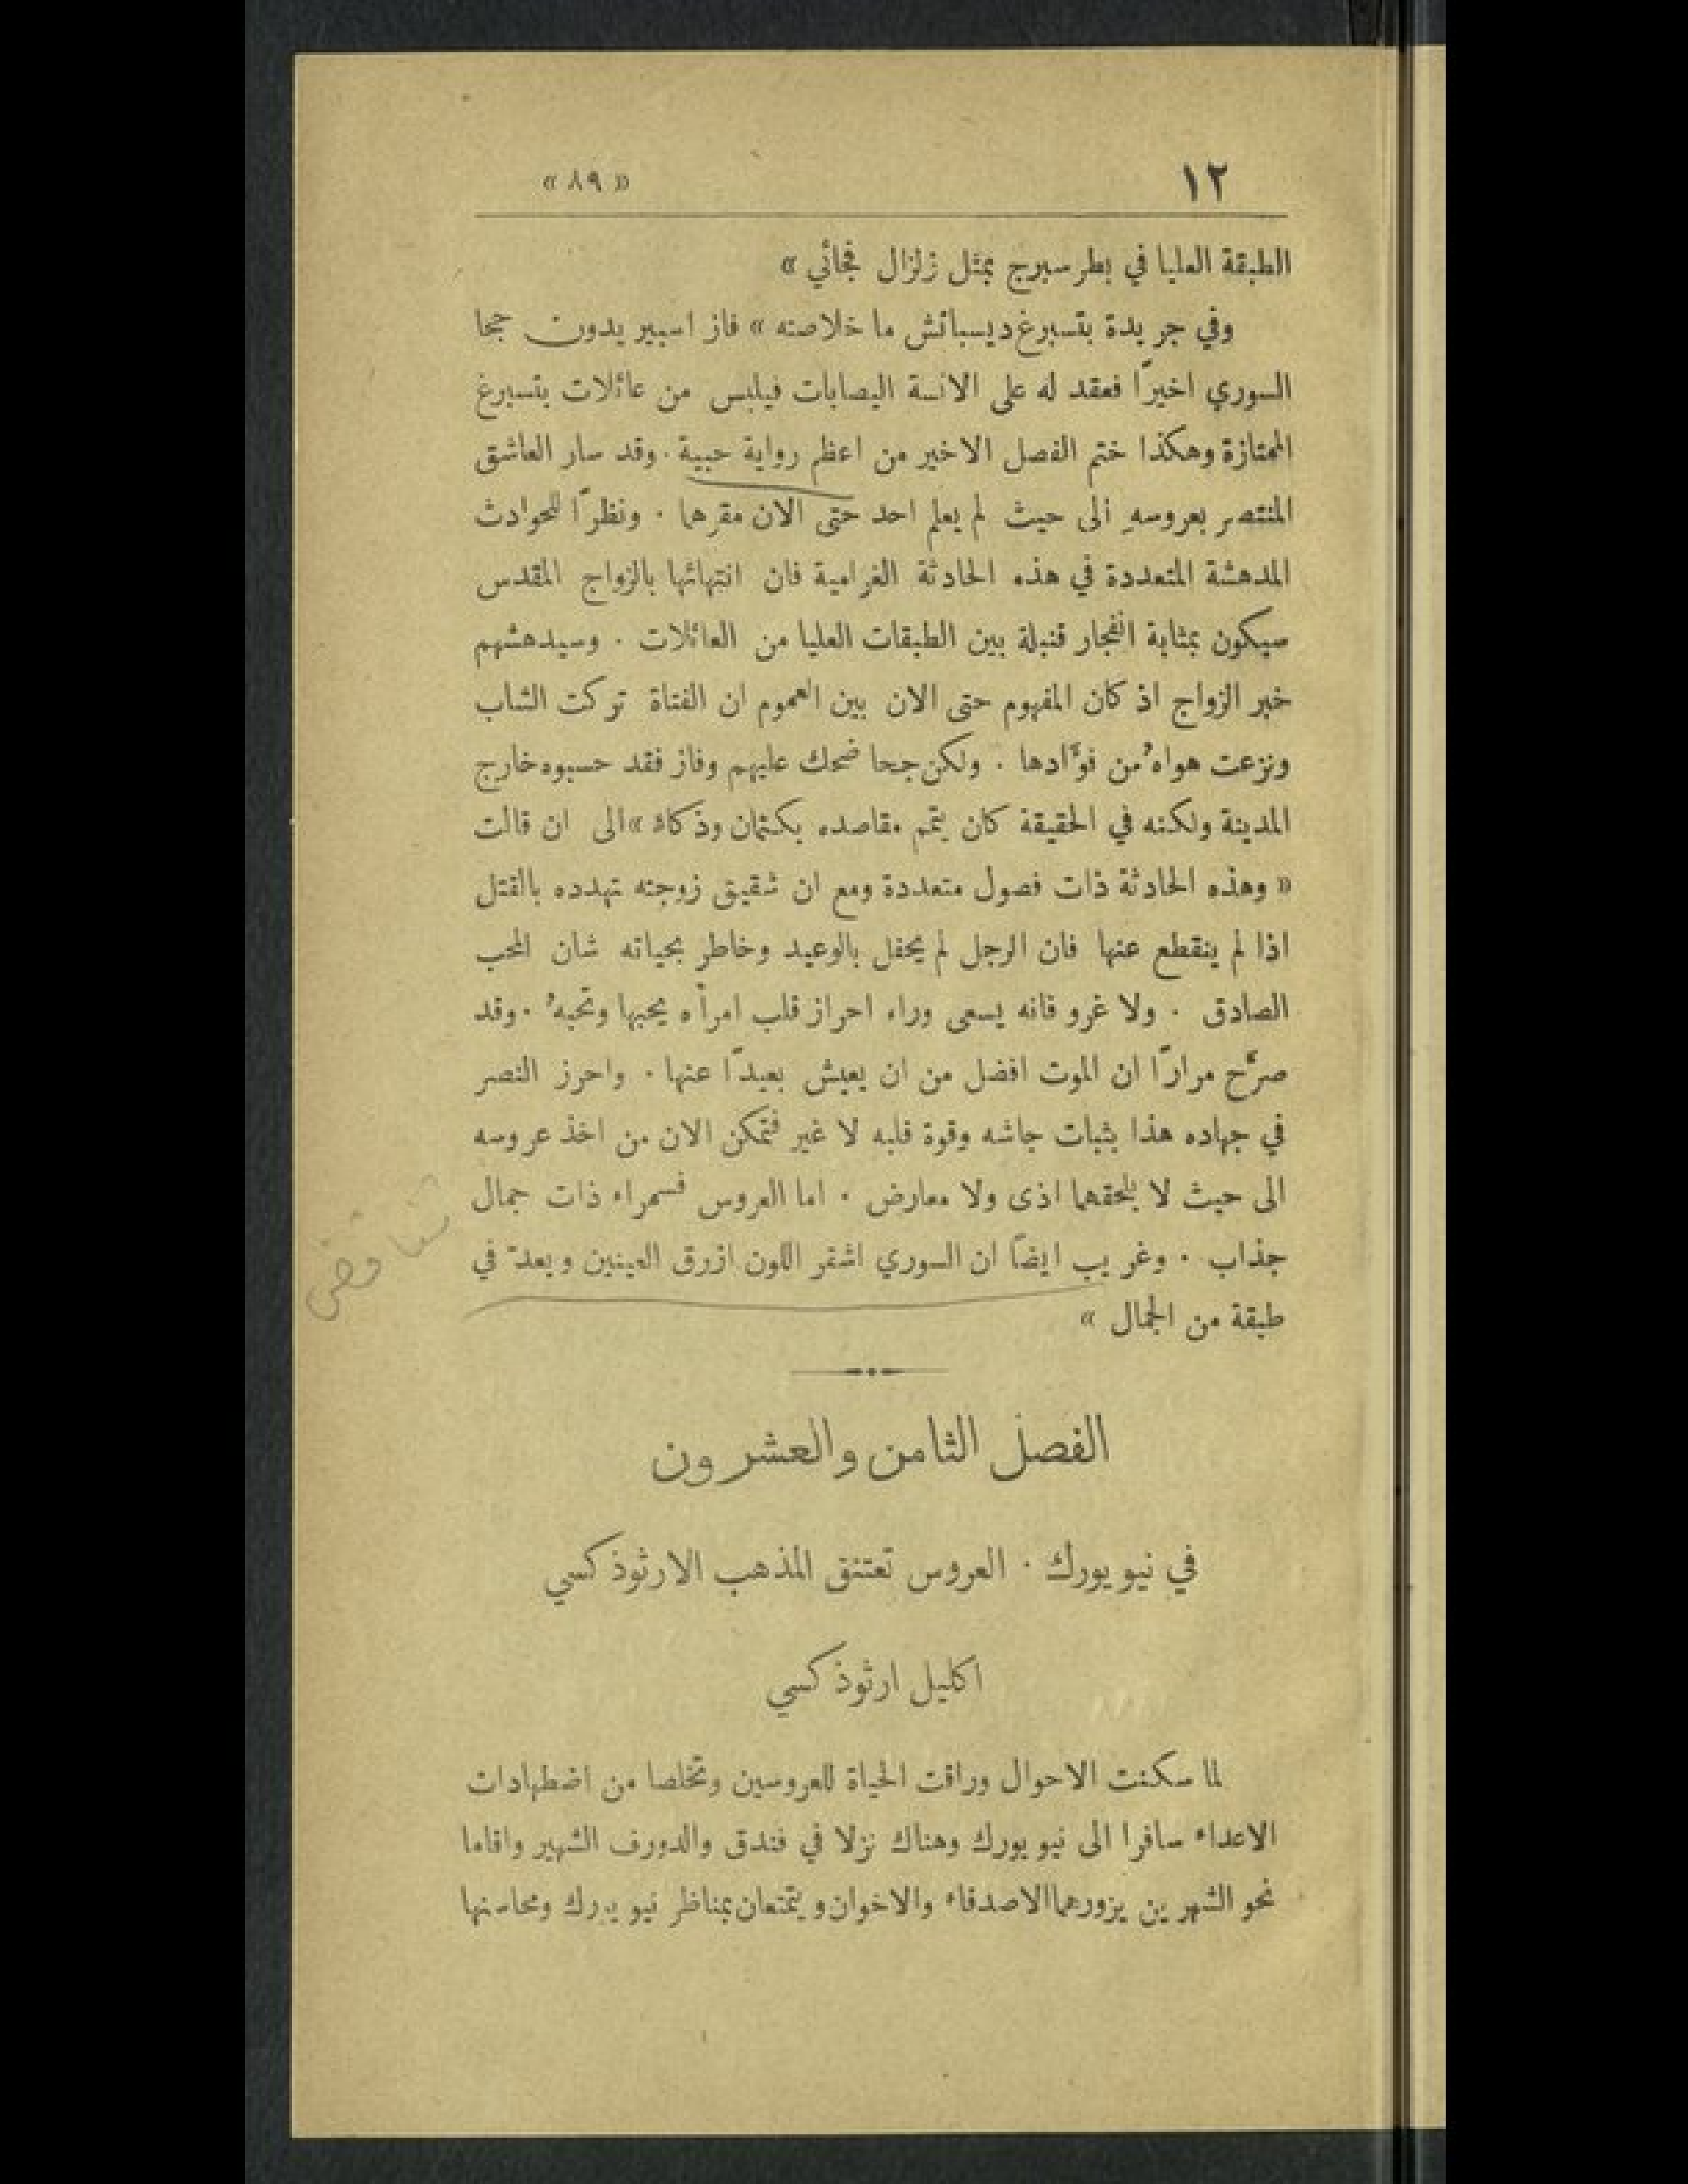 ١٢ « ٨٩ »
الطبقة العليا في بطرسبرج بمثل زلزال فجائي »
وفي جريدة بتسبرغ ديسباتش ما خلاصته « فاز اسبير بدون جحا
السوري اخيرًا فعقد له على الانسة اليصابات فيلبس من عائلات بتسبرغ
الممتازة وهكذا ختم الفصل الاخير من اعظم رواية حبية . وقد سار العاشق
المنتصر بعروسهِ الى حيث لم يعلم احد حتى الان مقرهما . ونظرًا للحوادث
المدهشة المتعددة في هذه الحادثة الغرامية فان انتهائها بالزواج المقدس
سيكون بمثابة انفجار قنبلة بين الطبقات العليا من العائلات . وسيدهشهم
خبر الزواج اذ كان المفهوم حتى الان بين العموم ان الفتاة تركت الشاب
ونزعت هواهُ من فوءَادها . ولكن جحا ضحك عليهم وفاز فقد حسبوه خارج
المدينة ولكنه في الحقيقة كان يتمم مقاصده بكتمان وذكاء » الى ان قالت
« وهذه الحادثة ذات فصول متعددة ومع ان شقيق زوجته تهدده بالقتل
اذا لم ينقطع عنها فان الرجل لم يحفل بالوعيد وخاطر بحياته شان المحب
الصادق . ولا غرو فانه يسعى وراء احراز قلب امرأه يحبها وتحبهُ . وقد
صرَّح مرارًا ان الموت افضل من ان يعيش بعيدًا عنها . واحرز النصر
في جهاده هذا بثبات جاشه وقوة قلبه لا غير فتمكن الان من اخذ عروسه
الى حيث لا يلحقهما اذى ولا معارض . اما العروس فسمراء ذات جمال
جذاب . وغريب ايضًا ان السوري اشقر اللون ازرق العينين ويعدّ في
طبقة من الجمال »
تناقض
الفصل الثامن والعشرون
في نيويورك . العروس تعتنق المذهب الارثوذكسي
اكليل ارثوذكسي
لما سكنت الاحوال وراقت الحياة للعروسين وتخلصا من اضطهادات
الاعداء سافرا الى نيويورك وهناك نزلا في فندق والدورف الشهير واقاما
نحو الشهرين يزورهما الاصدقاء والاخوان ويتمتعان بمناظر نيويورك ومحاسنها